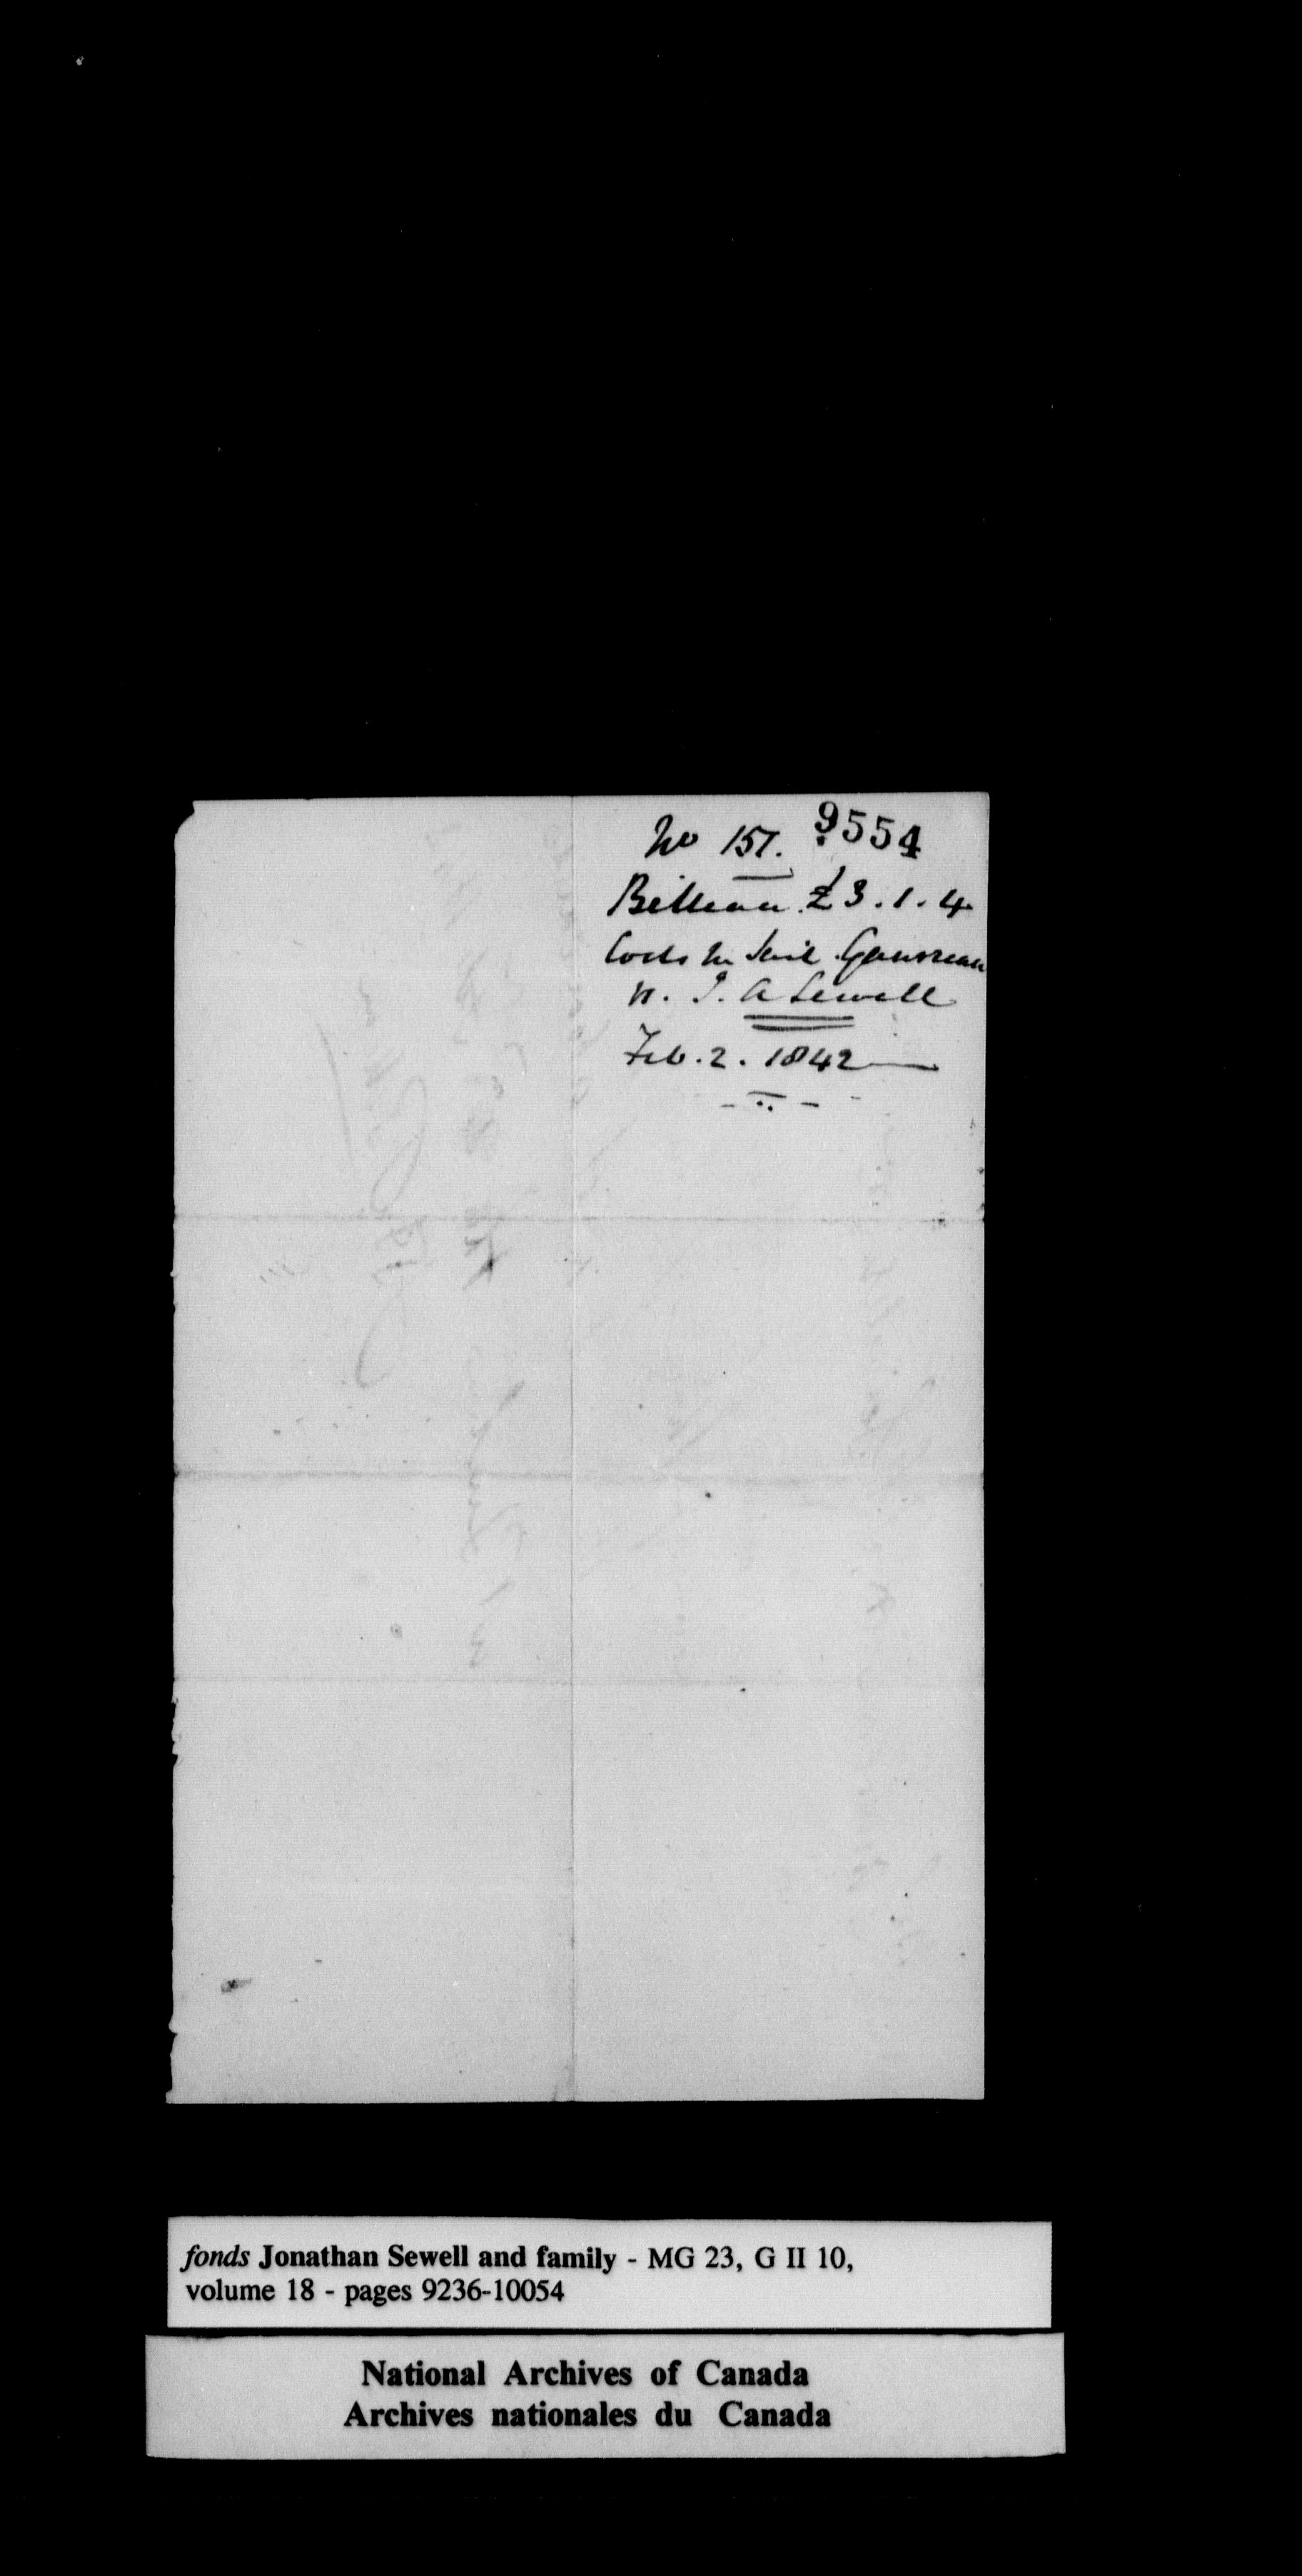 9554
No 157.
Billeau £3.1.4
Costs in Suit Gauvreau
vs. J. A Sewell
Feb. 2. 1842
fonds Jonathan Sewell and family - MG 23, G II 10,
volume 18 - pages 9236-10054
National Archives of Canada
Archives nationales du Canada